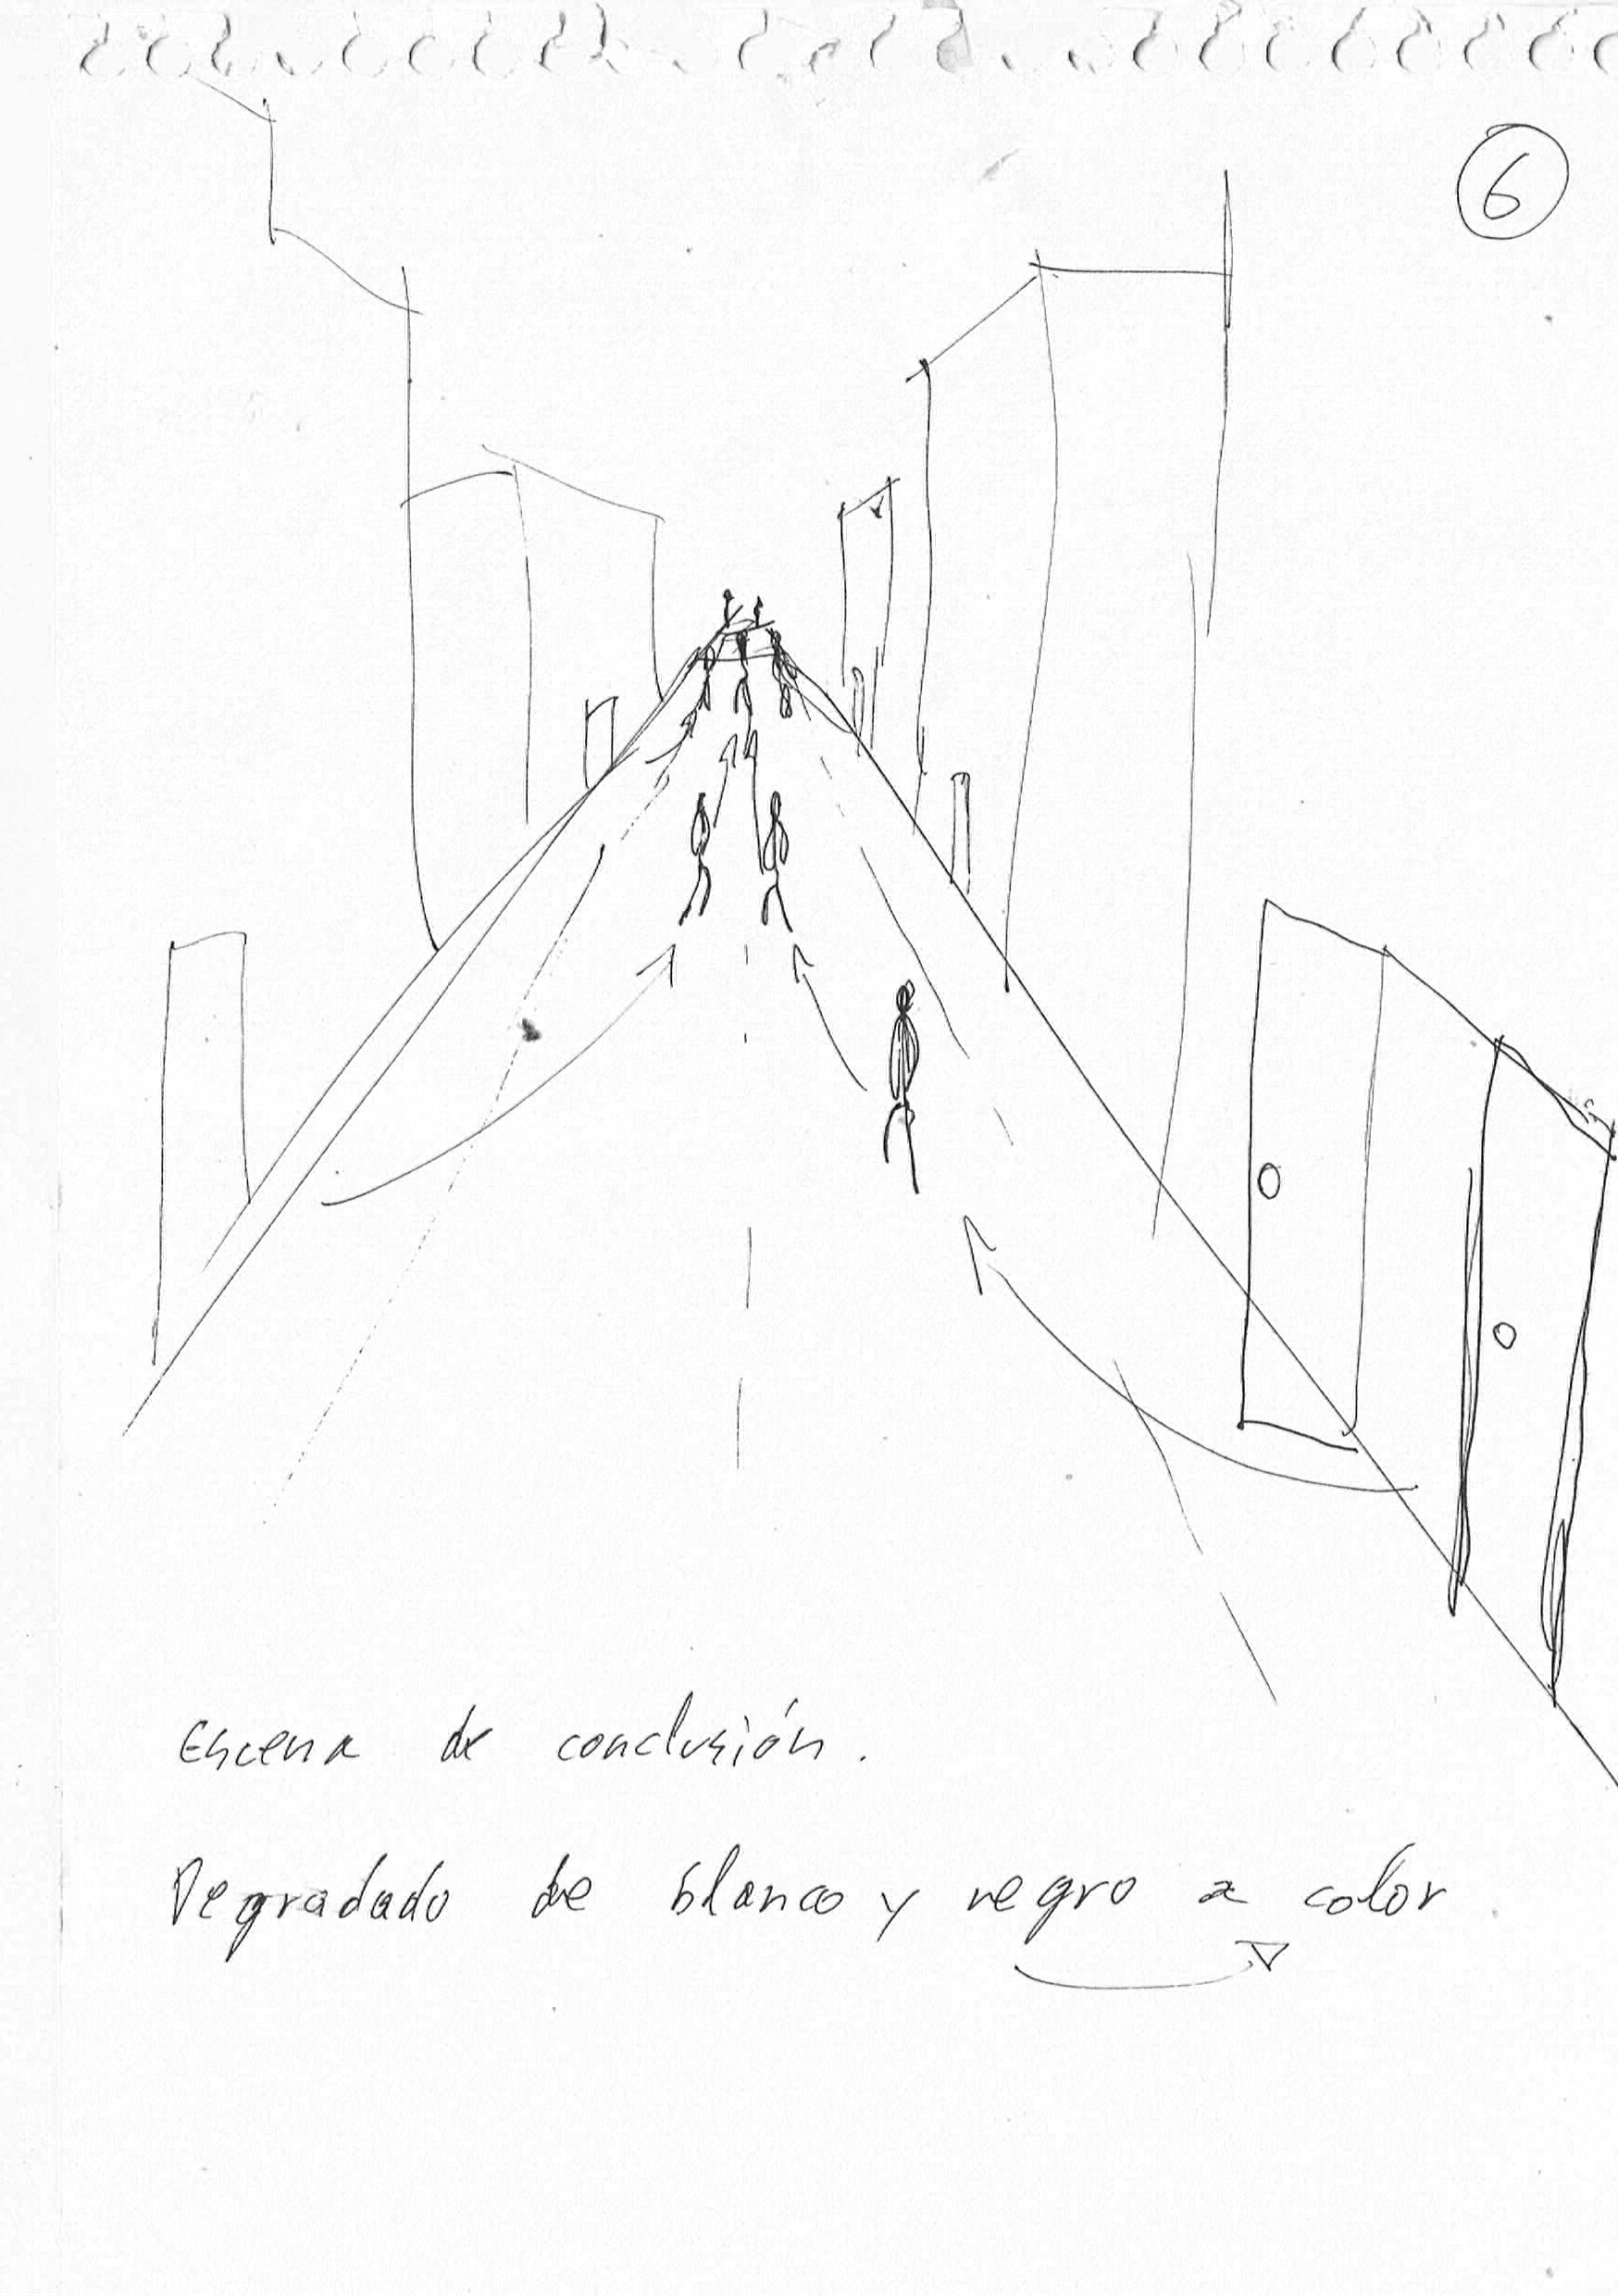 6
Escena de conclusión.
Degradado de blanco y negro a color.